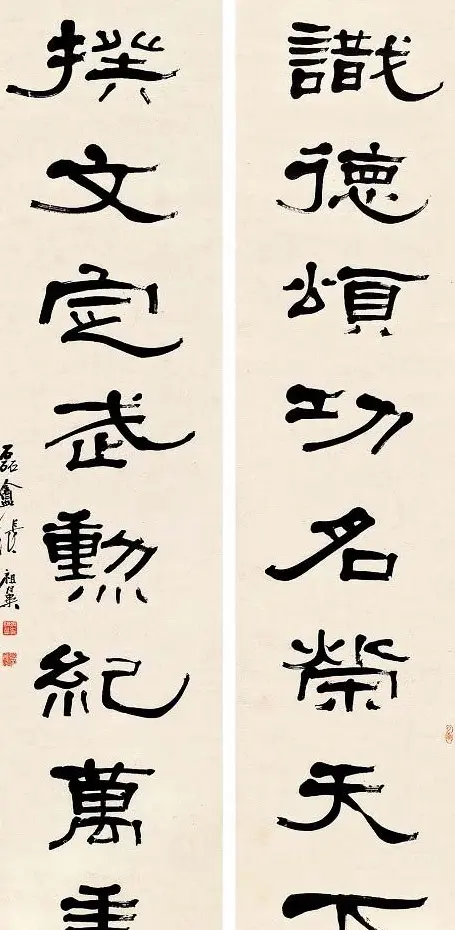 識德頌功名榮天下
揆文定武勳紀萬
磊盦張祖翼